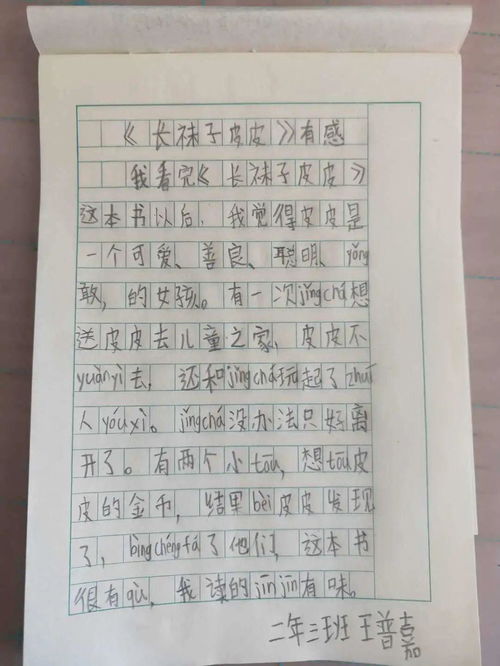 《长袜子皮皮》有感
我看完《长袜子皮皮》
这本书以后，我觉得皮皮是
一个可爱、善良、聪明、yǒng
敢，的女孩。有一次jǐngchá想
送皮皮去儿童之家，皮皮不
yuànyì去，还和jǐngchá玩起了zhuī
人yóuxì。jǐngchá没办法只好离
开了。有两个小tōu，想tōu皮
皮的金币，结果bèi皮皮发现
了，bìngchéngfá了他们，这本书
很有qù，我读的jīnjīn有味。
二年三班 王普嘉